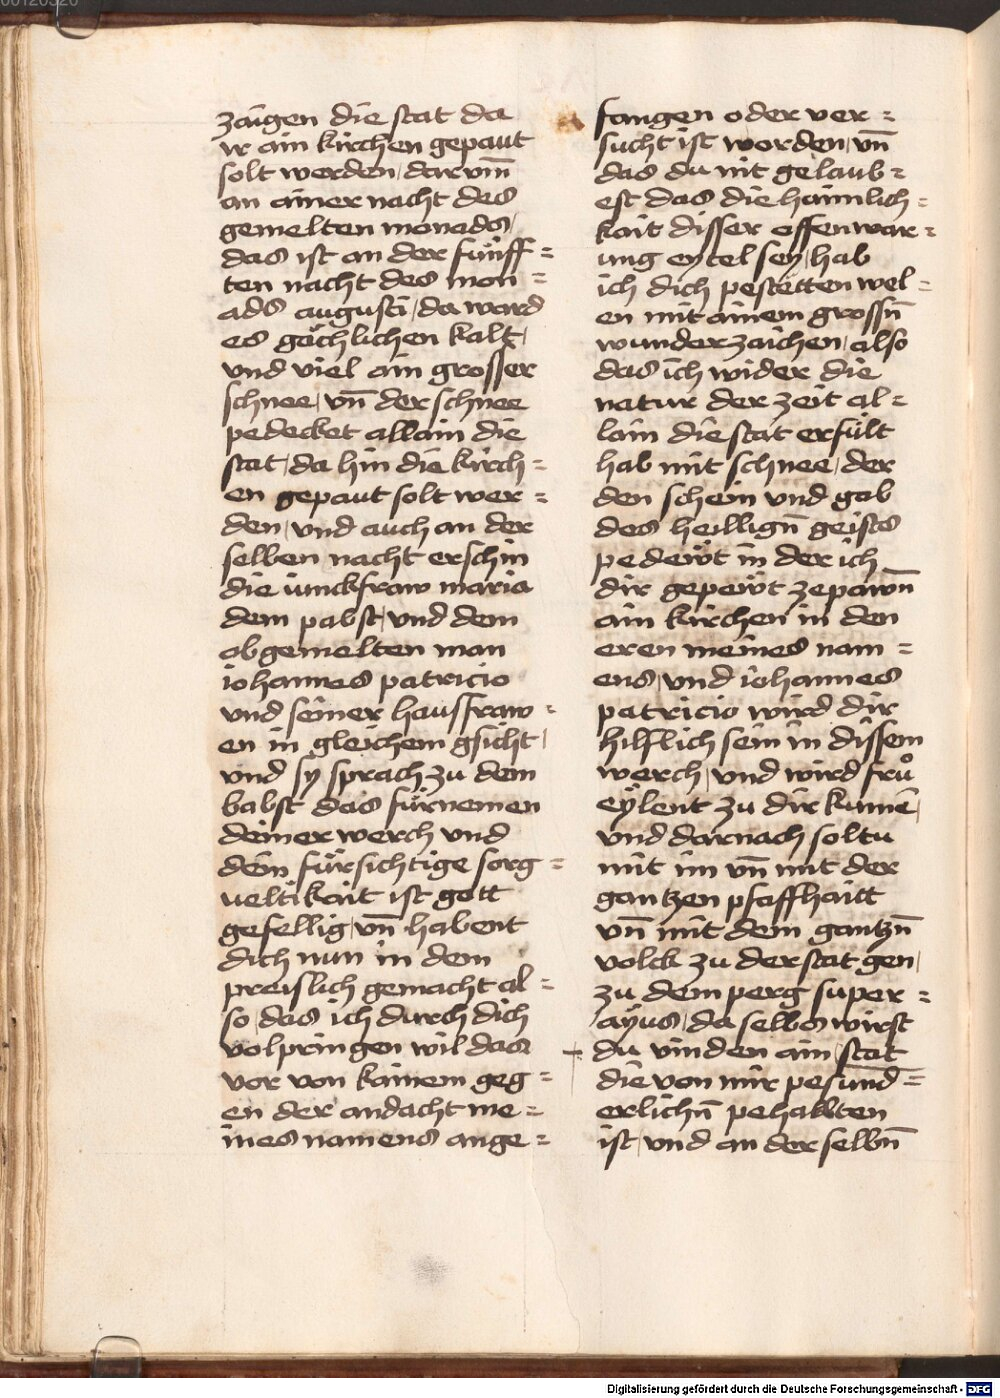 00120520
zaigen die stat da
ir ain kirchen gepaut
solt werden, dar vm̄
an ainer nacht des
gemelten monads,
das ist an der fünff =
ten nacht des mon =
ads augusti, da ward
es gächlichen kalt,
vnd viel ain grosser
schnee, vn̄ der schnee
pedecket allain die
stat, da hin die kirch =
en gepaut solt wer =
den, vnd auch an der
selben nacht erschin
die iunckfraw maria
dem pabst, vnd dem
obgemelten man
iohannes patricio
vnd seiner hausfraw =
en in gleichem gsicht,
vnd sy sprach zu dem
babst das fürnemen
deiner werch vnd
dein fürsichtige sorg =
ueltikait ist gott
gefellig, vn̄ habent
dich nun in dem
preislich gemacht al =
so, das ich durch dich
volpringen wil das
vor von kainem geg =
en der andacht me =
ines namens ange =
fangen oder ver =
sucht ist worden, vn̄
das du nit gelaub =
est das die haimlich =
kait disser offenwar =
ung eytel sey, hab
ich dich pestetten wel =
en mit ainem grossn̄
wunderzaichen, also
das ich wider die
natur der zeit al =
lain die stat erfült
hab mit schnee, der
den schein vnd gab
des heillign̄ geists
pedewt in der ich
dir gepewt zepawn̄
ain kirchen in den
eren meines nam =
ens, vnd iohannes
patricio wird dir
hilflich sein in dissem
werch, vnd wird frů
eylent zu dir kumē,
vnd darnach soltu
mit im vn̄ mit der
gantzen pfaffhaitt
vn̄ mit dem gantzn̄
volck zu der stat gen,
zu dem perg super =
ayus, da selbs wirst
du vinden ain stat
die von mir pesund =
erlichn̄ pehallten
ist, vnd an der selbn̄
Digitalisierung gefördert durch die Deutsche Forschungsgemeinschaft - DFG